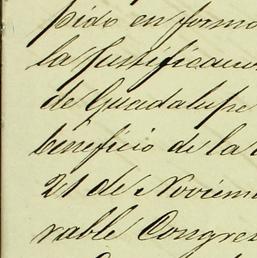 pido en forma
la justificacion
de Guadalupe
beneficio de la
21 de Noviem
rable Congre